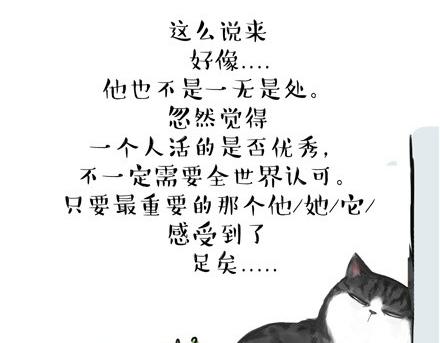 这么说来
好像....
他也不是一无是处。
忽然觉得
一个人活的是否优秀，
不一定需要全世界认可。
只要最重要的那个他/她/它/
感受到了
足矣.....